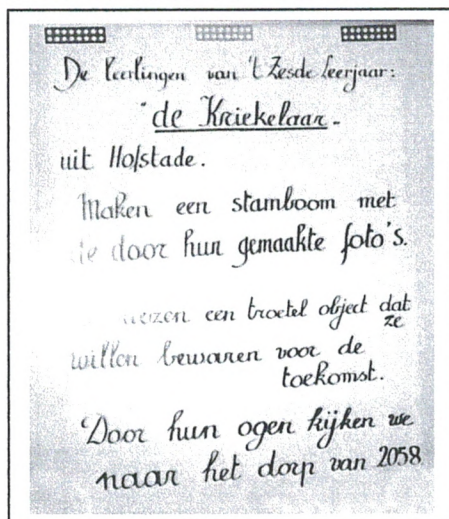 De leerlingen van 't Zesde leerjaar:
"de Kriekelaar-
uit Hofstade.
Maken een stamboom met
door hun gemaakte foto's.
een troetel object dat
ze
willen bewaren voor de
toekomst.
Door hun ogen kijken we
naar het dorp van 2058